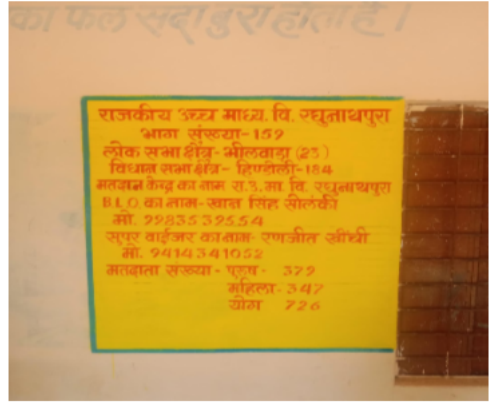 का फल सदा बुरा होता है।
राजकीय उच्च माध्य. वि. रघुनाथपुरा
भाग संख्या-159
लोक सभा क्षेत्र-भीलवाड़ा (23)
विधान सभा क्षेत्र- हिण्डोली-184
मतदान केन्द्र का नाम रा.उ.मा. वि. रघुनाथपुरा
B.L.O का नाम- खान सिंह सोलंकी
मो. 9983539554
सुपर वाईजर का नाम- रणजीत खींची
मो. 9414341052
मतदाता संख्या - पुरुष - 379
महिला - 347
योग 726